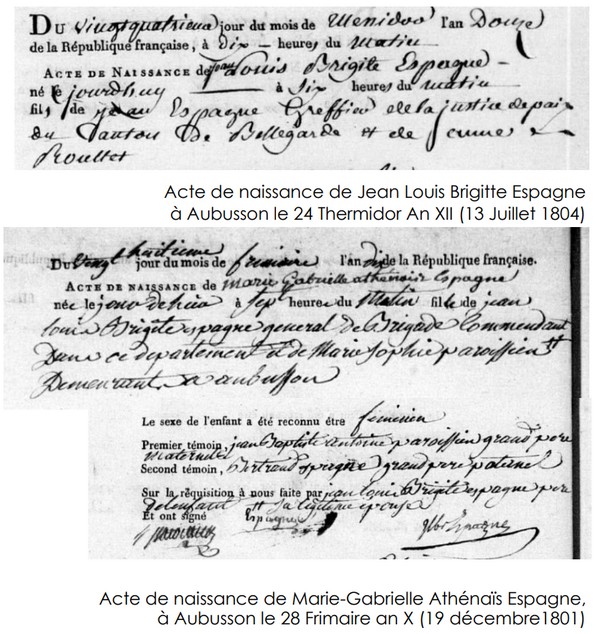 DU vingt quatrieme jour du mois de Messidor l'an Douze
de la République française, à Dix - heures du Matin
ACTE DE NAISSANCE de jean Louis Brigite Espagne -
né le jourdhuy à Six heures du matin
fils de jean Espagne Greffier de la justice de paix
du Canton de Bellegarde et de
Roullet
Acte de naissance de Jean Louis Brigitte Espagne
à Aubusson le 24 Thermidor An XII (13 Juillet 1804)
Du Vingt huitieme jour du mois de frimaire l'an dix de la République française.
ACTE DE NAISSANCE de marie Gabrielle athenais Espagne
née le jour de hier à sept heures du Matin fille de jean
louis Brigite espagne general de Brigade Commandant
Dans ce departement et de Marie Sophie paroissien
Demeurant a aubusson
Le sexe de l'enfant a été reconnu être feminin
Premier témoin, jean Baptiste antoine paroissien grand pere
maternel
Second témoin, Bertrand espagne grand pere paternel
Sur la réquisition à nous faite par jean louis Brigite espagne pere
de lenfant et sa legitime epouse
Et ont signé Espagne
Acte de naissance de Marie-Gabrielle Athénaïs Espagne,
à Aubusson le 28 Frimaire an X (19 décembre1801)